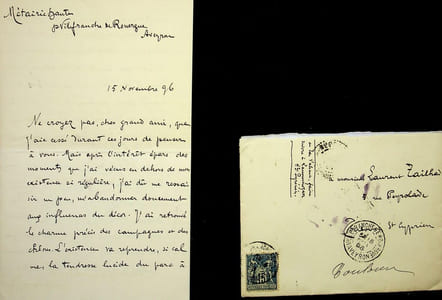 Métairie Haute
p. Villefranche de Rouergue
Aveyron
15 Novembre 96
Ne croyez pas, cher grand ami, que
j'aie cessé durant ces jours de penser
à vous. Mais après l'intérêt épars des
moments que j'ai vécus en dehors de mon
existence si régulière, j'ai dû me ressai-
sir un peu, m'abandonner doucement
aux influences du décor. J'ai retrouvé
le charme précis des campagnes et des
L'existence va reprendre, si cal-
me, la tendresse lucide du parc à
monsieur Laurent Tailha
rue Peyrolade
St Cyprien
Toulouse
15